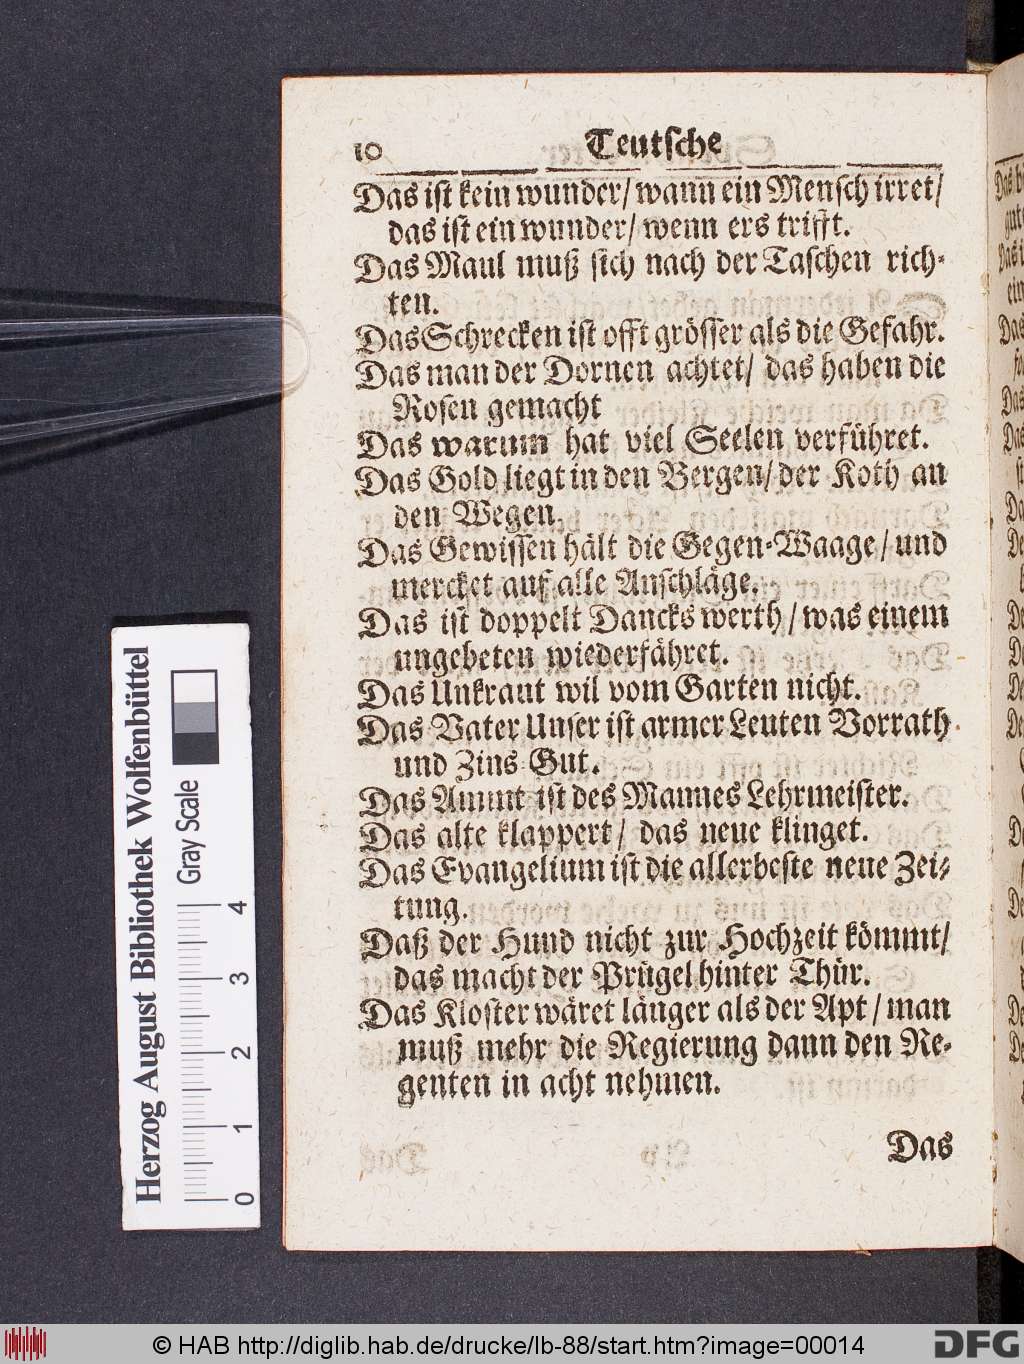 10 Teutsche
Das ist kein wunder/ wann ein Mensch irret/
das ist ein wunder/ wenn ers trifft.
Das Maul muß sich nach der Taschen rich-
ten.
Das Schrecken ist offt grösser als die Gefahr.
Das man der Dornen achtet/ das haben die
Rosen gemacht
Das warum hat viel Seelen verführet.
Das Gold liegt in den Bergen/ der Koth an
den Wegen.
Das Gewissen hält die Gegen-Waage/ und
mercket auf alle Anschläge.
Das ist doppelt Dancks werth/ was einem
ungebeten wiederfähret.
Das Unkraut wil vom Garten nicht.
Das Vater Unser ist armer Leuten Vorrath
und Zins-Gut.
Das Ammt ist des Mannes Lehrmeister.
Das alte klappert/ das neue klinget.
Das Evangelium ist die allerbeste neue Zei-
tung.
Daß der Hund nicht zur Hochzeit kömmt/
das macht der Prügel hinter Thür.
Das Kloster wäret länger als der Apt/ man
muß mehr die Regierung dann den Re-
genten in acht nehmen.
Das
Herzog August Bibliothek Wolfenbüttel
Gray Scale
0 1 2 3 4
© HAB http://diglib.hab.de/drucke/lb-88/start.htm?image=00014
DFG